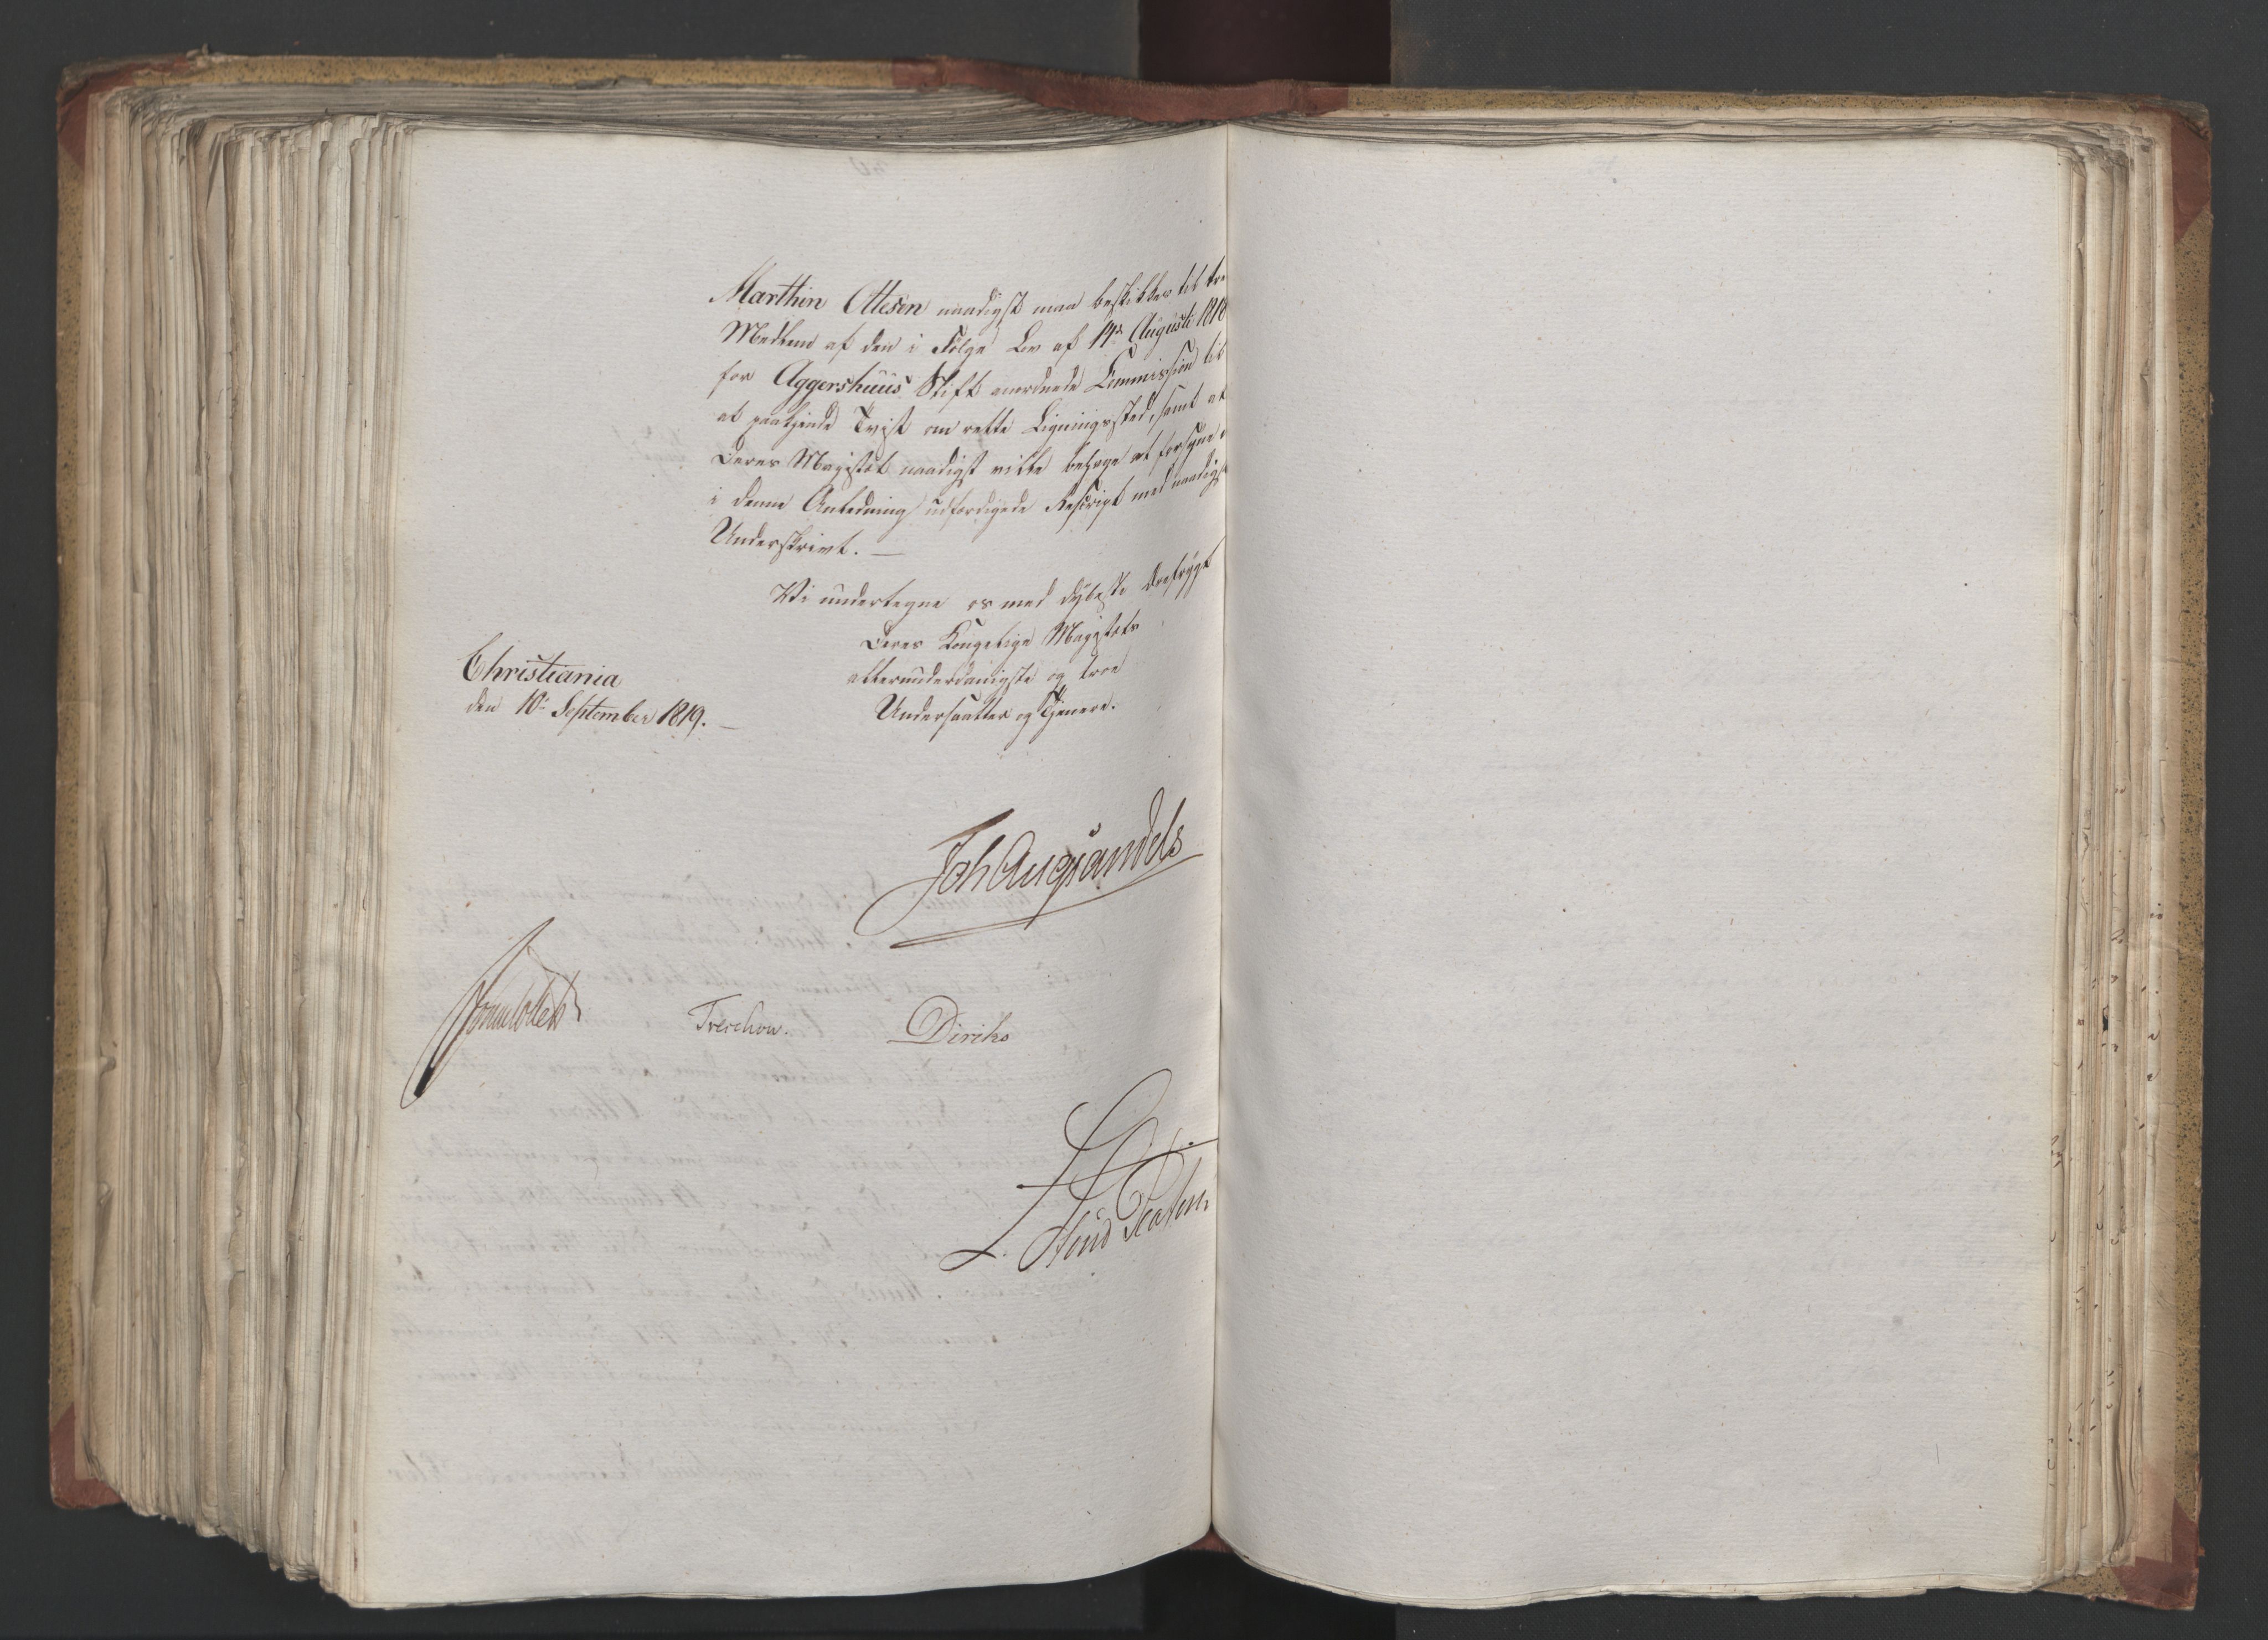 Marthin Ottesen naadigst maa beskikkes til tre
Medlem af den i Følge Lov af 14de Augusti 1818
for Aggershuus Stift anordnede Commission til
at paakjende Tvist om rette Ligningssted, samt at
Deres Majestæt naadigst ville behage at forsyne
i denne Anledning udfærdigede Rescript med naadigst
Underskrivt. —
Vi undertegne os med dybeste Ærefrygt
Deres Kongelige Majestæts
allerunderdanigste og troe
Undersaatter og Tjenere.
Christiania
den 10de September 1819. —
Joh Aug Sandels
Sommerfeldt
Treschow.
Diriks